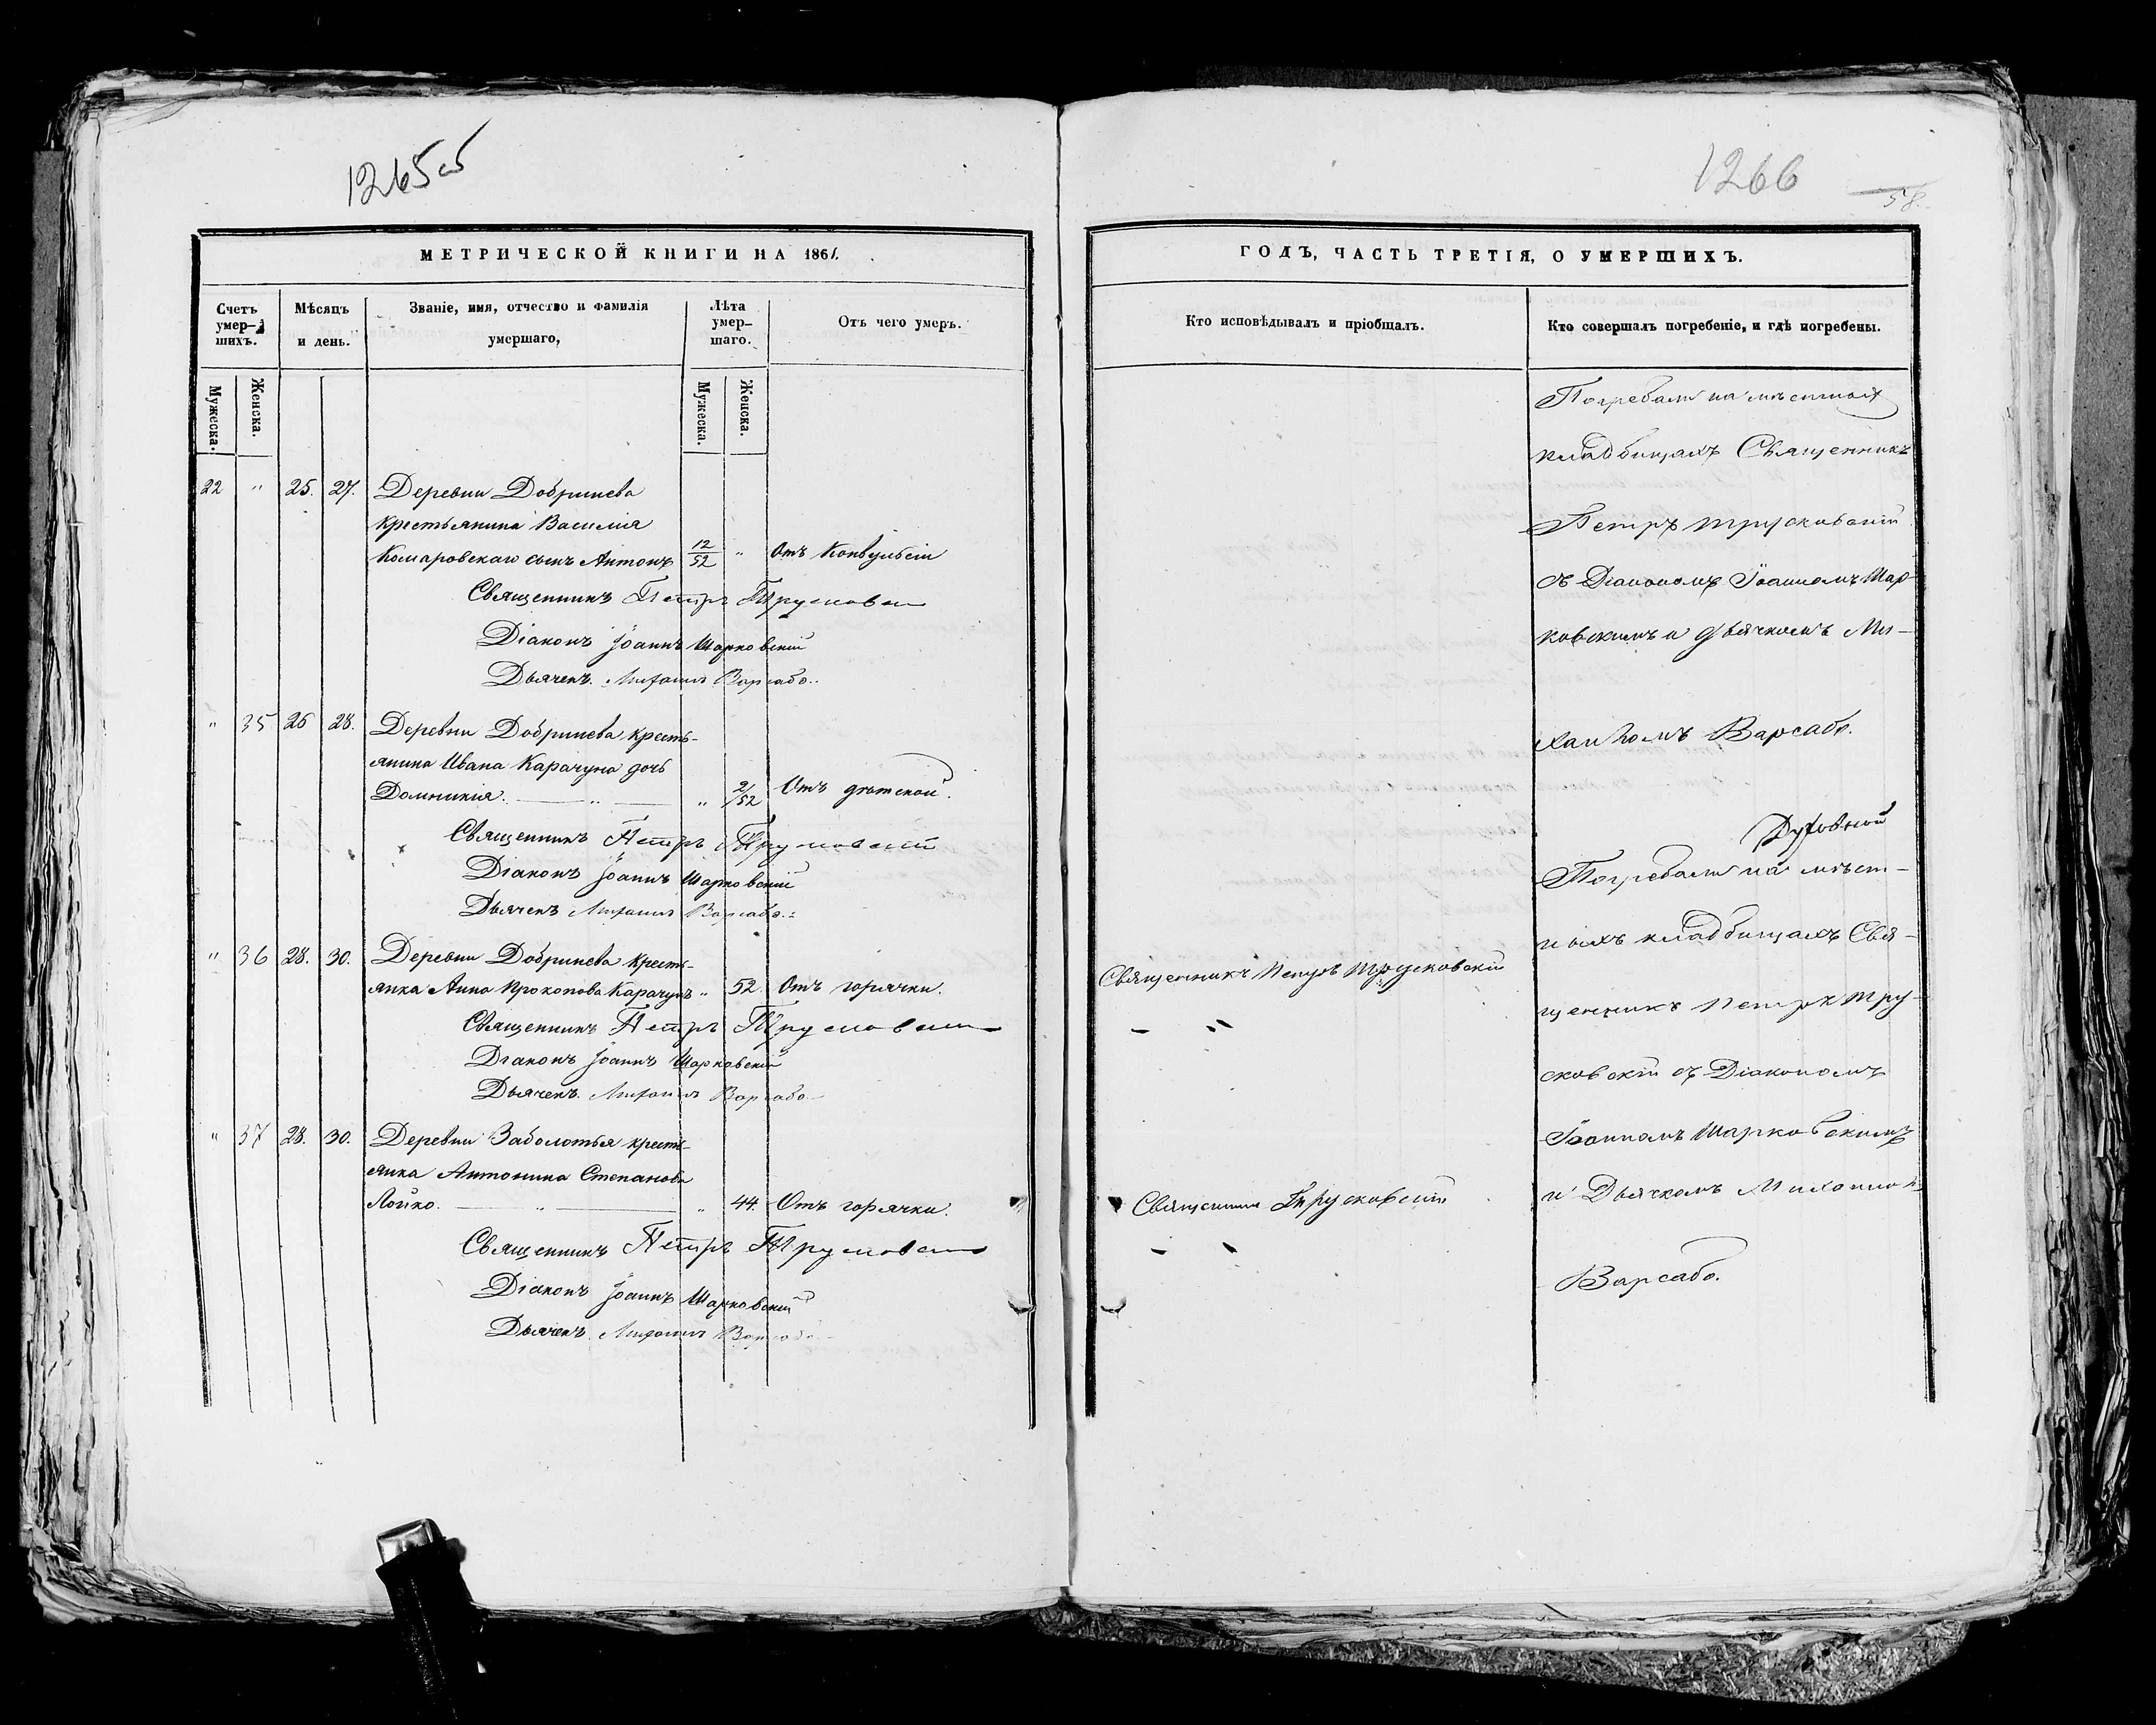 1265об
МЕТРИЧЕСКОЙ КНИГИ НА 1861.
Счетъ умер-шихъ.
Мѣсяцъ и день.
Званіе, имя, отчество и фамилія умершаго,
Лѣта умер-шаго.
Отъ чего умеръ.
Мужеска. Женска. Мужеска. Женска.
22 " 25. 27. Деревни Добринева
крестьянина Василія
Комаровскаго сынъ Антонъ 12/52 " Отъ Конвульсіи
Священникъ Петръ Трусковскій
Діаконъ Іоаннъ Шарковскій
Дьячекъ Михаилъ Варсабо.
" 35 26 28. Деревни Добринева кресть-
янина Ивана Карачуна дочь
Домникія. " " 2/52 Отъ дѣтской.
Священникъ Петръ Трусковскій
Діаконъ Іоаннъ Шарковскій
Дьячекъ Михаилъ Варсабо.
" 36 28. 30. Деревни Добринева кресть-
янка Анна Прокопова Карачунъ " 52 Отъ горячки.
Священникъ Петръ Трусковскій
Діаконъ Іоаннъ Шарковскій
Дьячекъ Михаилъ Варсабо
" 37 28. 30. Деревни Заболотья кресть-
янка Антонина Степанова
Лойко. " " 44. Отъ горячки.
Священникъ Петръ Трусковскій
Діаконъ Іоаннъ Шарковскій
Дьячекъ Михаилъ Варсабо
1266
58.
ГОДЪ, ЧАСТЬ ТРЕТІЯ, О УМЕРШИХЪ.
Кто исповѣдывалъ и пріобщалъ.
Кто совершалъ погребеніе, и гдѣ погребены.
Погребалъ на мѣстныхъ
кладбищахъ Священникъ
Петръ Трусковскій
съ Діакономъ Іоанномъ Шар-
ковскимъ и Дьячкомъ Ми-
хаиломъ Варсабо.
Духовной
Погребалъ на мѣст-
ныхъ кладбищахъ Свя-
Священникъ Петръ Трусковскій
щенникъ Петръ Тру-
– "
сковскій съ Діакономъ
Іоанномъ Шарковскимъ
и Дьячкомъ Михаиломъ
Священникъ Трусковскій
– "
Варсабо.